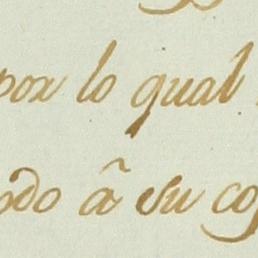 por lo qual
odo â su co